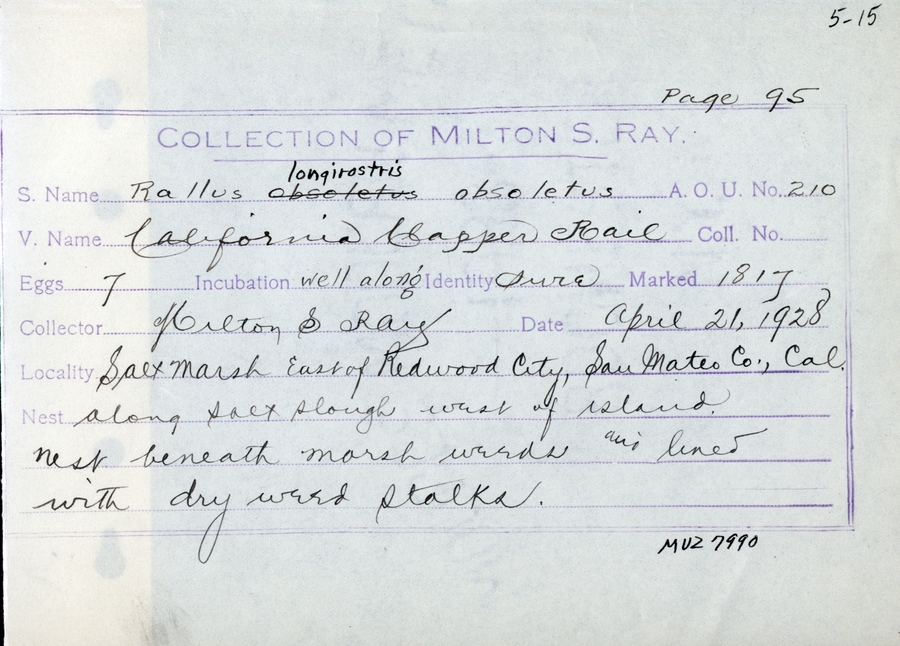 5-15
Page 95
COLLECTION OF MILTON S. RAY.
longirostris
S. Name Rallus obsoletus obsoletus A. O. U. No. 210
V. Name California Clapper Rail Coll. No.
Eggs 7 Incubation well along Identity Sure Marked 181/7
Collector Milton S Ray Date April 21, 1928
Locality Salt Marsh East of Redwood City, San Mateo Co., Cal.
Nest along salt slough west of island.
Nest beneath marsh weeds and lined
with dry weed stalks.
MVZ 7990